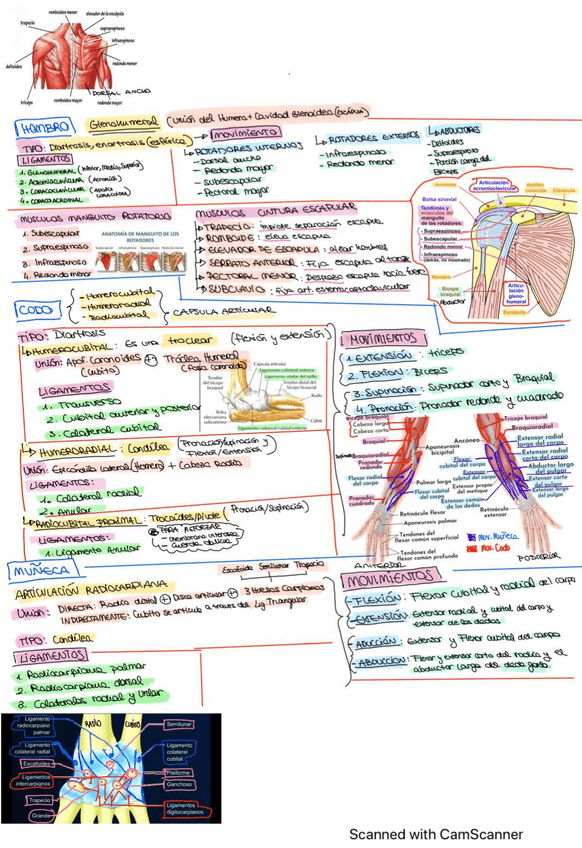 romboides menor
elevador de la escápula
trapecio
supraespinoso
infraespinoso
redondo menor
deltoides
DORSAL ANCHO
tríceps
romboides mayor
redondo mayor
HOMBRO
Glenohumeral (Unión del Humero + Cavidad Glenoidea (Escápula)
TIPO: Diartrosis, enartrosis (esférica)
LIGAMENTOS
1. GLENOHUMERAL (Inferior, Medio, Superior)
2. ACROMIOCLAVICULAR (Acromion)
3. CORACOCLAVICULAR (Apófisis coracoides)
4. CORACOACROMIAL
MOVIMIENTO
ROTADORES INTERNOS
- Dorsal ancho
- Redondo mayor
- Subescapular
- Pectoral mayor
ROTADORES EXTERNOS
- Infraespinoso
- Redondo menor
ABDUCTORES
- Deltoides
- Supraespinoso
- Porción larga del Biceps
MUSCULOS MANGUITO ROTATORIO
1. Subescapular
2. Supraespinoso
3. Infraespinoso
4. Redondo menor
ANATOMÍA DE MANGUITO DE LOS ROTADORES
MUSCULOS CINTURA ESCAPULAR
TRAPECIO: Impide separación escapula
ROMBOIDE: eleva escapula
ELEVADOR DE ESCAPULA: elevar hombros
SERRATO ANTERIOR: Fija escapula al torax
PECTORAL MENOR: Desplaza escapula hacia torax
SUBCLAVIO: Fija art. esternocostoclavicular
Acromion
Articulación acromioclavicular
Apófisis coracoides
Clavícula
Bolsa sinovial
Tendones y músculos del manguito de los rotadores:
- Supraespinoso
- Subescapular
- Redondo menor
- Infraespinoso (detrás, no mostrado)
Húmero
Bíceps braquial
Abductor
Articulación glenohumeral
Escápula
CODO
- Humerocubital
- Humeroradial
- Radiocubital
CAPSULA ARTICULAR
TIPO: Diartrosis
HUMEROCUBITAL: Es una troclear (flexión y extensión)
Unión: Apof. Coronoides (cubito) + Tróclea Humeral (fosa coronoidea)
LIGAMENTOS
1. Transverso
2. Cubital anterior y posterior
3. Colateral cubital
Cápsula articular
Ligamento colateral externo
Ligamento anular del radio
Tendón distal del bíceps braquial
Tendón del tríceps braquial
Radio
Bolsa olecraniana subcutánea
Cúbito
Ligamento colateral cubital externo
HUMERORADIAL: Condílea (Pronación/Supinación y Flexión/Extensión)
Unión: Epicóndilo Lateral (Humero) + Cabeza Radio
LIGAMENTOS:
1. Colateral radial
2. Anular
RADIOCUBITAL PROXIMAL: Trocoides/pivote (Pronación/Supinación)
LIGAMENTOS:
1. Ligamento Anular
PARA REFORZAR
- Membrana interosea
- Cuerda oblicua
MOVIMIENTOS
1. EXTENSION: triceps
2. FLEXION: Biceps
3. Supinación: Supinador corto y Braquial
4. Pronación: Pronador redondo y cuadrado
Bíceps braquial
Cabeza larga
Cabeza corta
Braquial
Braquiorradial
Pronador redondo
Flexor radial del carpo
Pronador cuadrado
Aponeurosis bicipital
Palmar largo
Flexor cubital del carpo
Retináculo flexor
Aponeurosis palmar
Tendones del flexor común superficial
Tendones del flexor común profundo
ANTERIOR
Tríceps braquial
Braquioradial
Ancóneo
Extensor radial largo del carpo
Flexor cubital del carpo
Extensor radial corto del carpo
Extensor cubital del carpo
Abductor largo del pulgar
Extensor propio del meñique
Extensor corto del pulgar
Extensor común de los dedos
Extensor largo del pulgar
Retináculo extensor
Mov. Muñeca
Mov. Codo
POSTERIOR
MUÑECA
ARTICULACIÓN RADIOCARPIANA
Escafoide Semilunar Trapecio
Unión: DIRECTA: Radio distal + Disco articular + 3 Huesos Carpianos
INDIRECTAMENTE: Cubito se articula a traves del Lig. Triangular
TIPO: Condílea
LIGAMENTOS
1. Radiocarpiano palmar
2. Radiocarpiano dorsal
3. Colaterales radial y ulnar
MOVIMIENTOS
- FLEXIÓN: Flexor cubital y radial del carpo
- EXTENSIÓN: Extensor radial y cubital del carpo y extensor de los dedos
- ADUCCIÓN: Extensor y Flexor cubital del carpo
- ABDUCCION: Flexor y extensor corto del radio y el abductor largo del dedo gordo
Ligamento radiocarpiano palmar
RADIO
CUBITO
Semilunar
Ligamento colateral radial
Ligamento colateral cubital
Escafoides
Ligamentos intercarpianos
Pisiforme
Ganchoso
Trapecio
Grande
Ligamentos digitocarpianos
Scanned with CamScanner